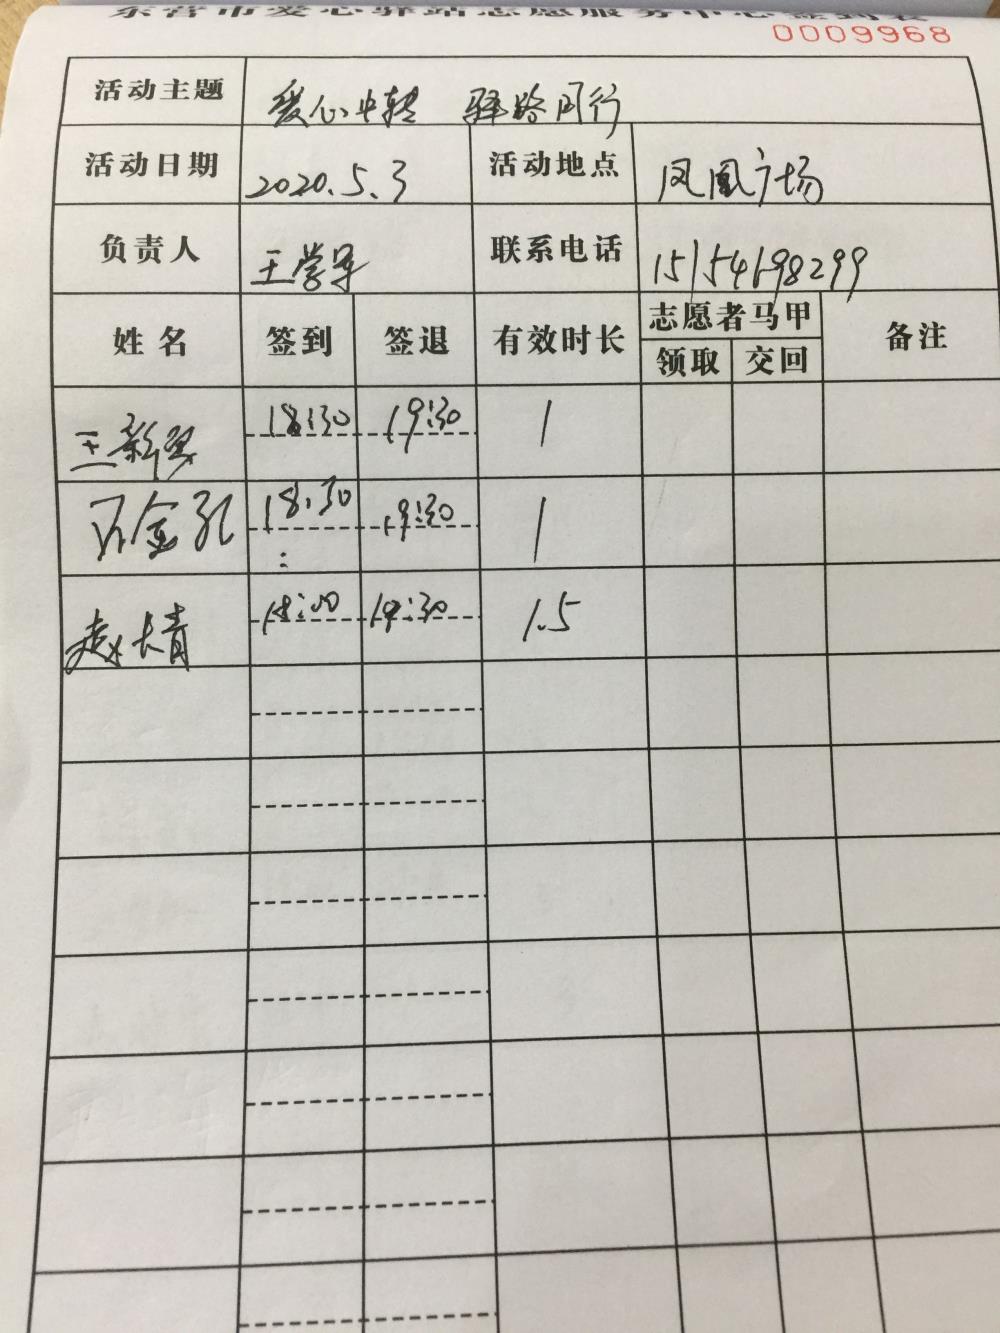 东营市爱心驿站志愿服务中心签到表
0009968
活动主题 爱心中转 驿路同行
活动日期 2020.5.3 活动地点 凤凰广场
负责人 王学军 联系电话 15154698299
姓名 签到 签退 有效时长 志愿者马甲 备注
领取 交回
18:30 19:30 1
18:30 19:30 1
:
赵长青 18:00 19:30 1.5